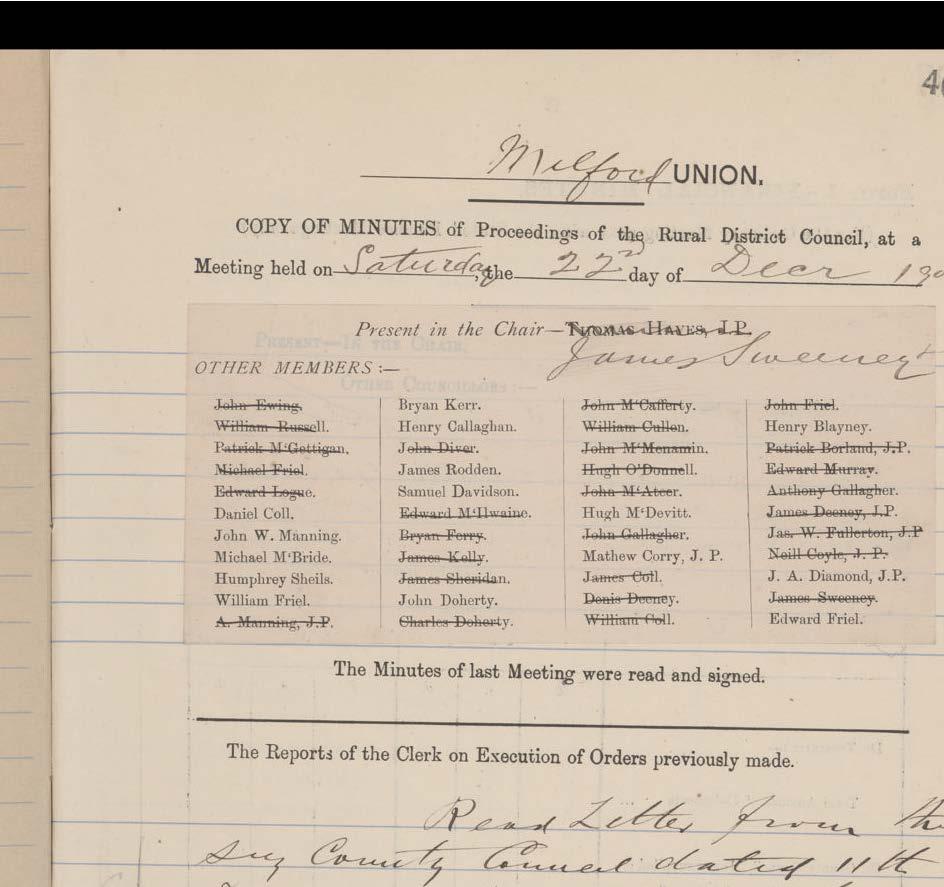 Milford UNION.
COPY OF MINUTES of Proceedings of the Rural District Council, at a
Meeting held on Saturday, the 22nd day of Decr 190
Present in the Chair—THOMAS HAYES, J.P.
James Sweeney
OTHER MEMBERS :—
John Ewing. Bryan Kerr. John M‘Cafferty. John Friel.
William Russell. Henry Callaghan. William Cullen. Henry Blayney.
Patrick M‘Gettigan. John Diver. John M‘Menamin. Patrick Borland, J.P.
Michael Friel. James Rodden. Hugh O’Donnell. Edward Murray.
Edward Logue. Samuel Davidson. John M‘Ateer. Anthony Gallagher.
Daniel Coll. Edward M‘Ilwaine. Hugh M‘Devitt. James Deeney, J.P.
John W. Manning. Bryan Ferry. John Gallagher. Jas. W. Fullerton, J.P
Michael M‘Bride. James Kelly. Mathew Corry, J. P. Neill Coyle, J. P.
Humphrey Sheils. James Sheridan. James Coll. J. A. Diamond, J.P.
William Friel. John Doherty. Denis Deeney. James Sweeney.
A. Manning, J.P. Charles Doherty. William Coll. Edward Friel.
The Minutes of last Meeting were read and signed.
The Reports of the Clerk on Execution of Orders previously made.
Read Letter from the
County Council dated 11th